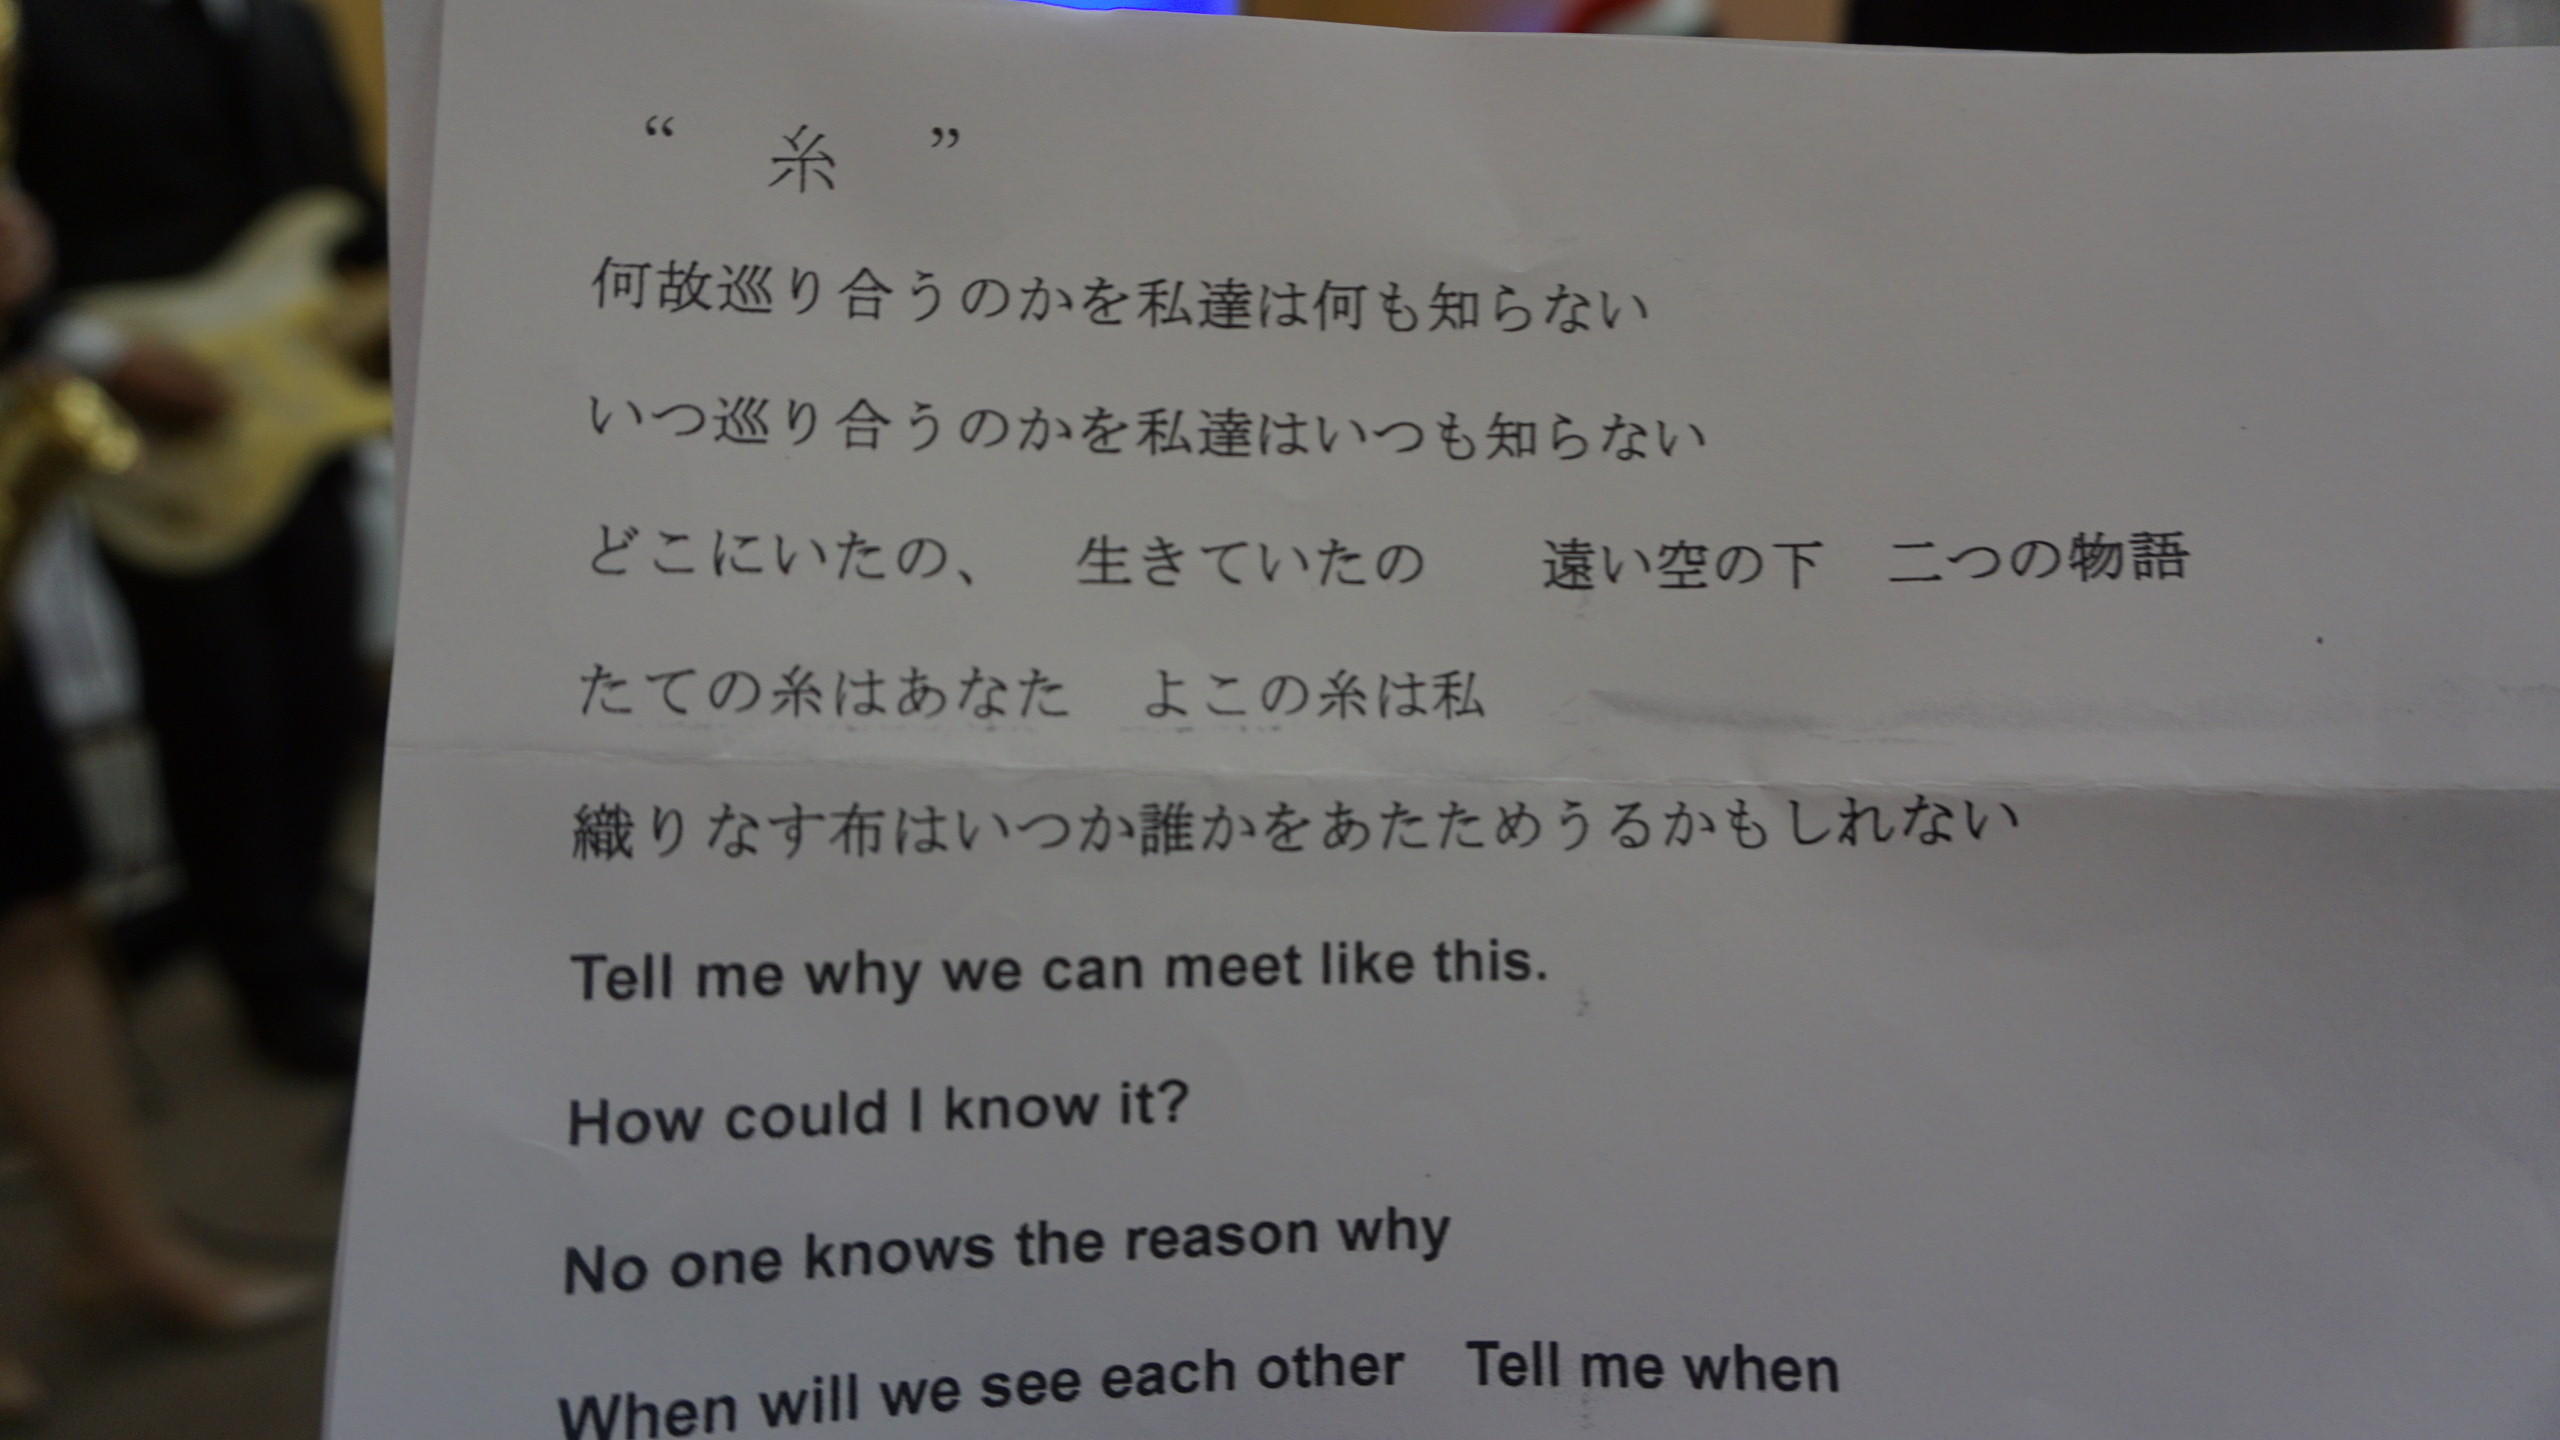 “　糸　”
何故巡り合うのかを私達は何も知らない
いつ巡り合うのかを私達はいつも知らない
どこにいたの、　生きていたの　　遠い空の下　二つの物語
たての糸はあなた　よこの糸は私
織りなす布はいつか誰かをあたためうるかもしれない
Tell me why we can meet like this.
How could I know it?
No one knows the reason why
When will we see each other　Tell me when